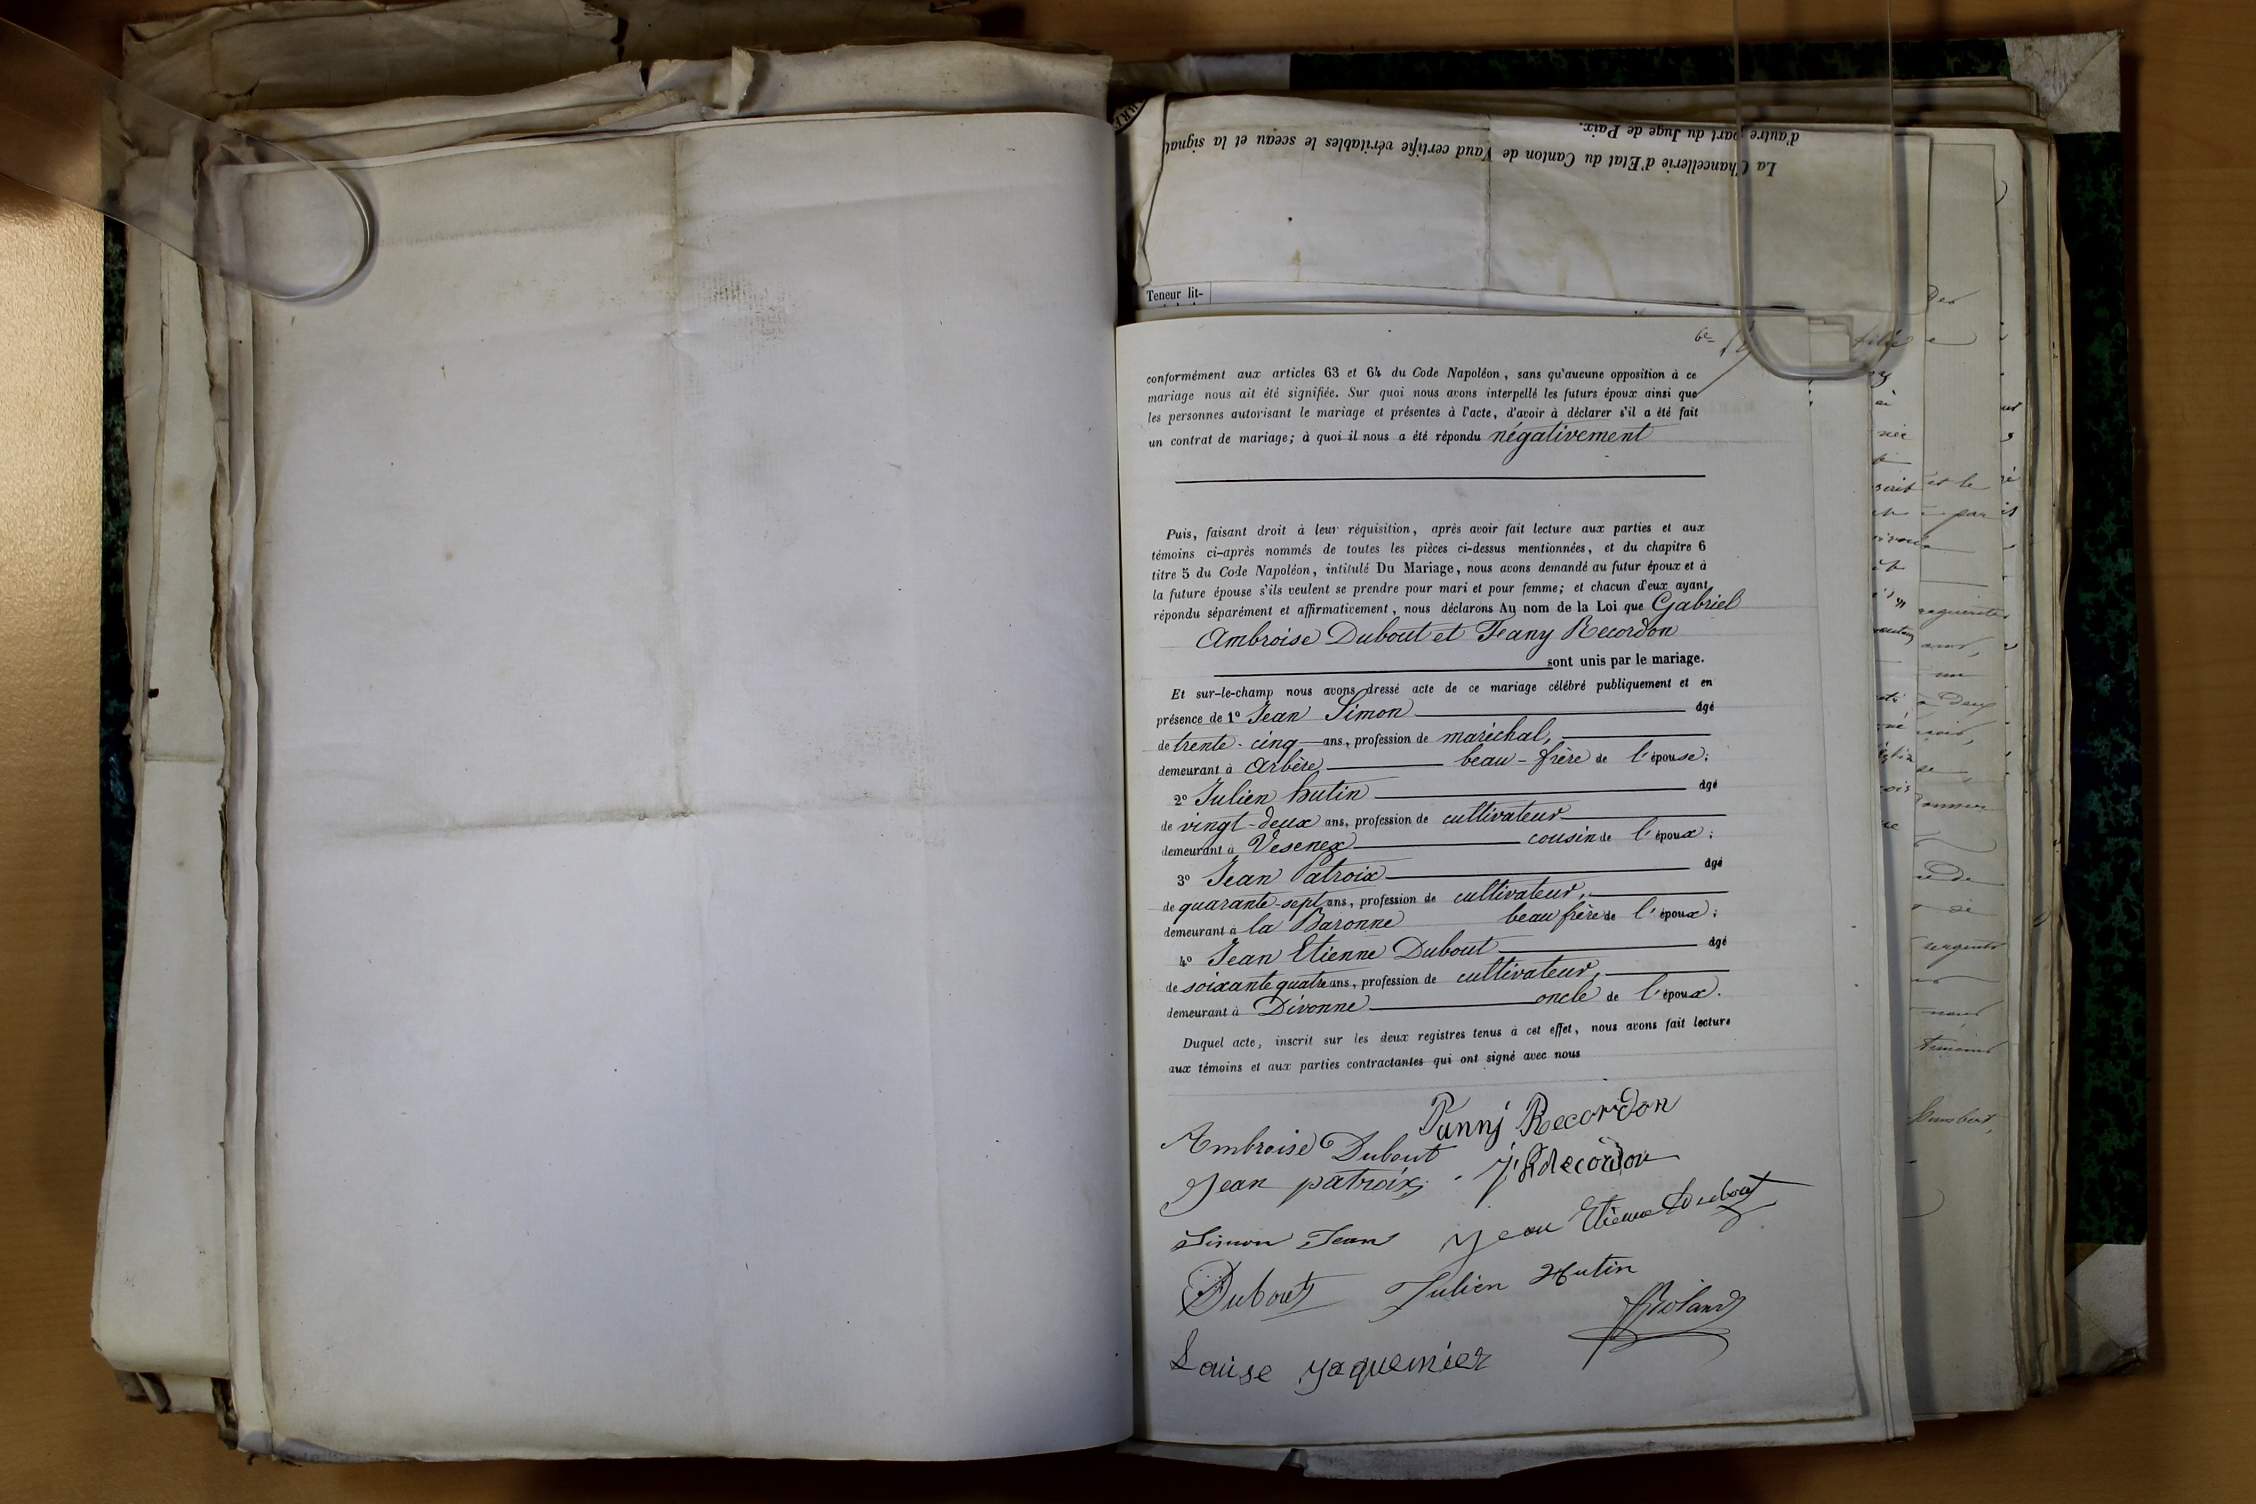 d'autre part du Juge de Paix.
La Chancellerie d'Etat du Canton de Vaud certifie véritables le sceau et la signat
Teneur lit-
6e
conformément aux articles 63 et 64 du Code Napoléon, sans qu'aucune opposition à ce
mariage nous ait été signifiée. Sur quoi nous avons interpellé les futurs époux ainsi que
les personnes autorisant le mariage et présentes à l'acte, d'avoir à déclarer s'il a été fait
un contrat de mariage; à quoi il nous a été répondu négativement
Puis, faisant droit à leur réquisition, après avoir fait lecture aux parties et aux
témoins ci-après nommés de toutes les pièces ci-dessus mentionnées, et du chapitre 6
titre 5 du Code Napoléon, intitulé Du Mariage, nous avons demandé au futur époux et à
la future épouse s'ils veulent se prendre pour mari et pour femme; et chacun d'eux ayant
répondu séparément et affirmativement, nous déclarons Au nom de la Loi que Gabriel
Ambroise Dubout et Fany Recordon
sont unis par le mariage.
Et sur-le-champ nous avons dressé acte de ce mariage célébré publiquement et en
présence de 1° Jean Simon âgé
de trente-cinq ans, profession de maréchal,
demeurant à Arbère beau-frère de l'épouse;
2° Julien hutin âgé
de vingt-deux ans, profession de cultivateur
demeurant à Vesenex cousin de l'époux;
3° Jean Patroix âgé
de quarante-sept ans, profession de cultivateur,
demeurant à la Baronne beau frère de l'époux;
4° Jean Etienne Dubout âgé
de soixante quatre ans, profession de cultivateur,
demeurant à Divonne oncle de l'époux.
Duquel acte, inscrit sur les deux registres tenus à cet effet, nous avons fait lecture
aux témoins et aux parties contractantes qui ont signé avec nous
Fannj Recordon
Ambroise Dubout
Jean patroix J Recordon
Simon Jean Jean Etienne Dubout
Dubout Julien Hutin
Louise Jaquemier